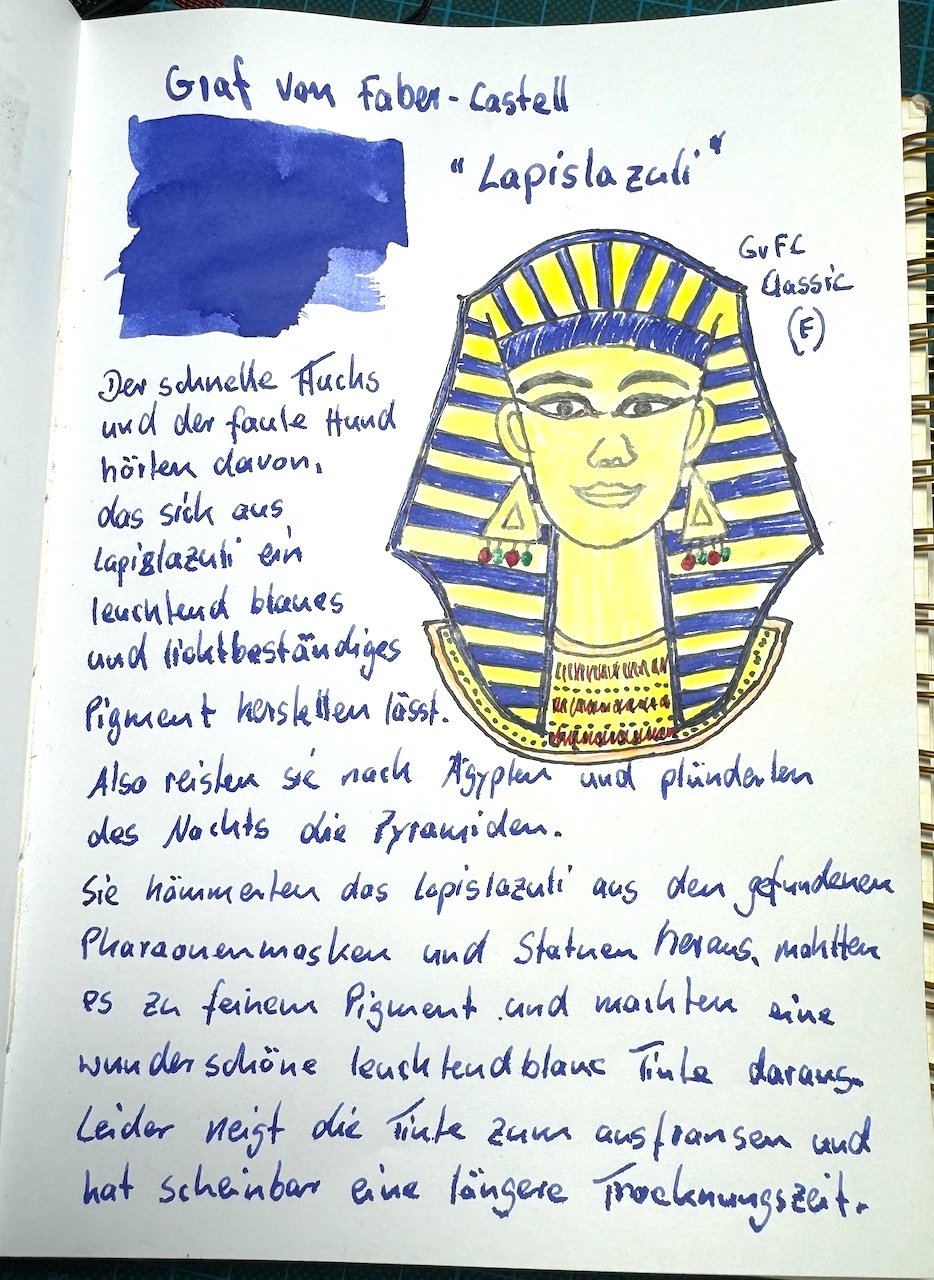 Graf von Faber-Castell
"Lapislazuli"
GvFC
Classic
(F)
Der schnelle Fuchs
und der faule Hund
hörten davon,
das sich aus
Lapislazuli ein
leuchtend blaues
und lichtbeständiges
Pigment herstellen lässt.
Also reisten sie nach Ägypten und plünderten
des Nachts die Pyramiden.
Sie hämmerten das Lapislazuli aus den gefundenen
Pharaonenmasken und Statuen heraus, mahlten
es zu feinem Pigment und machten eine
wunderschöne leuchtendblaue Tinte daraus.
Leider neigt die Tinte zum ausfransen und
hat scheinbar eine längere Trocknungszeit.